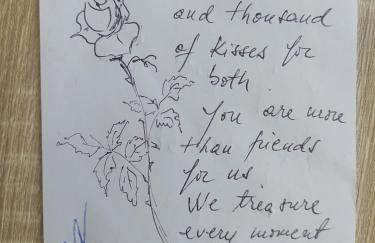 and thousand
of kisses for
both.
You are more
than friends
for us
We treasure
every moment